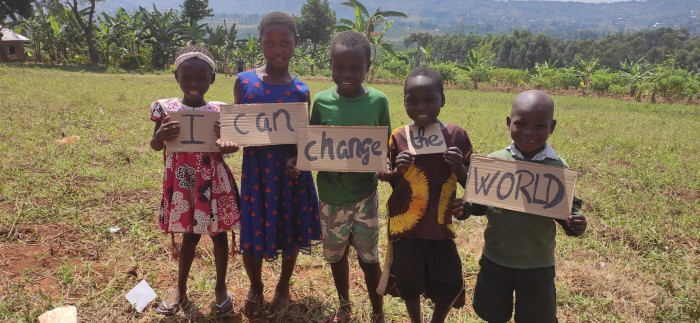 I can change the WORLD